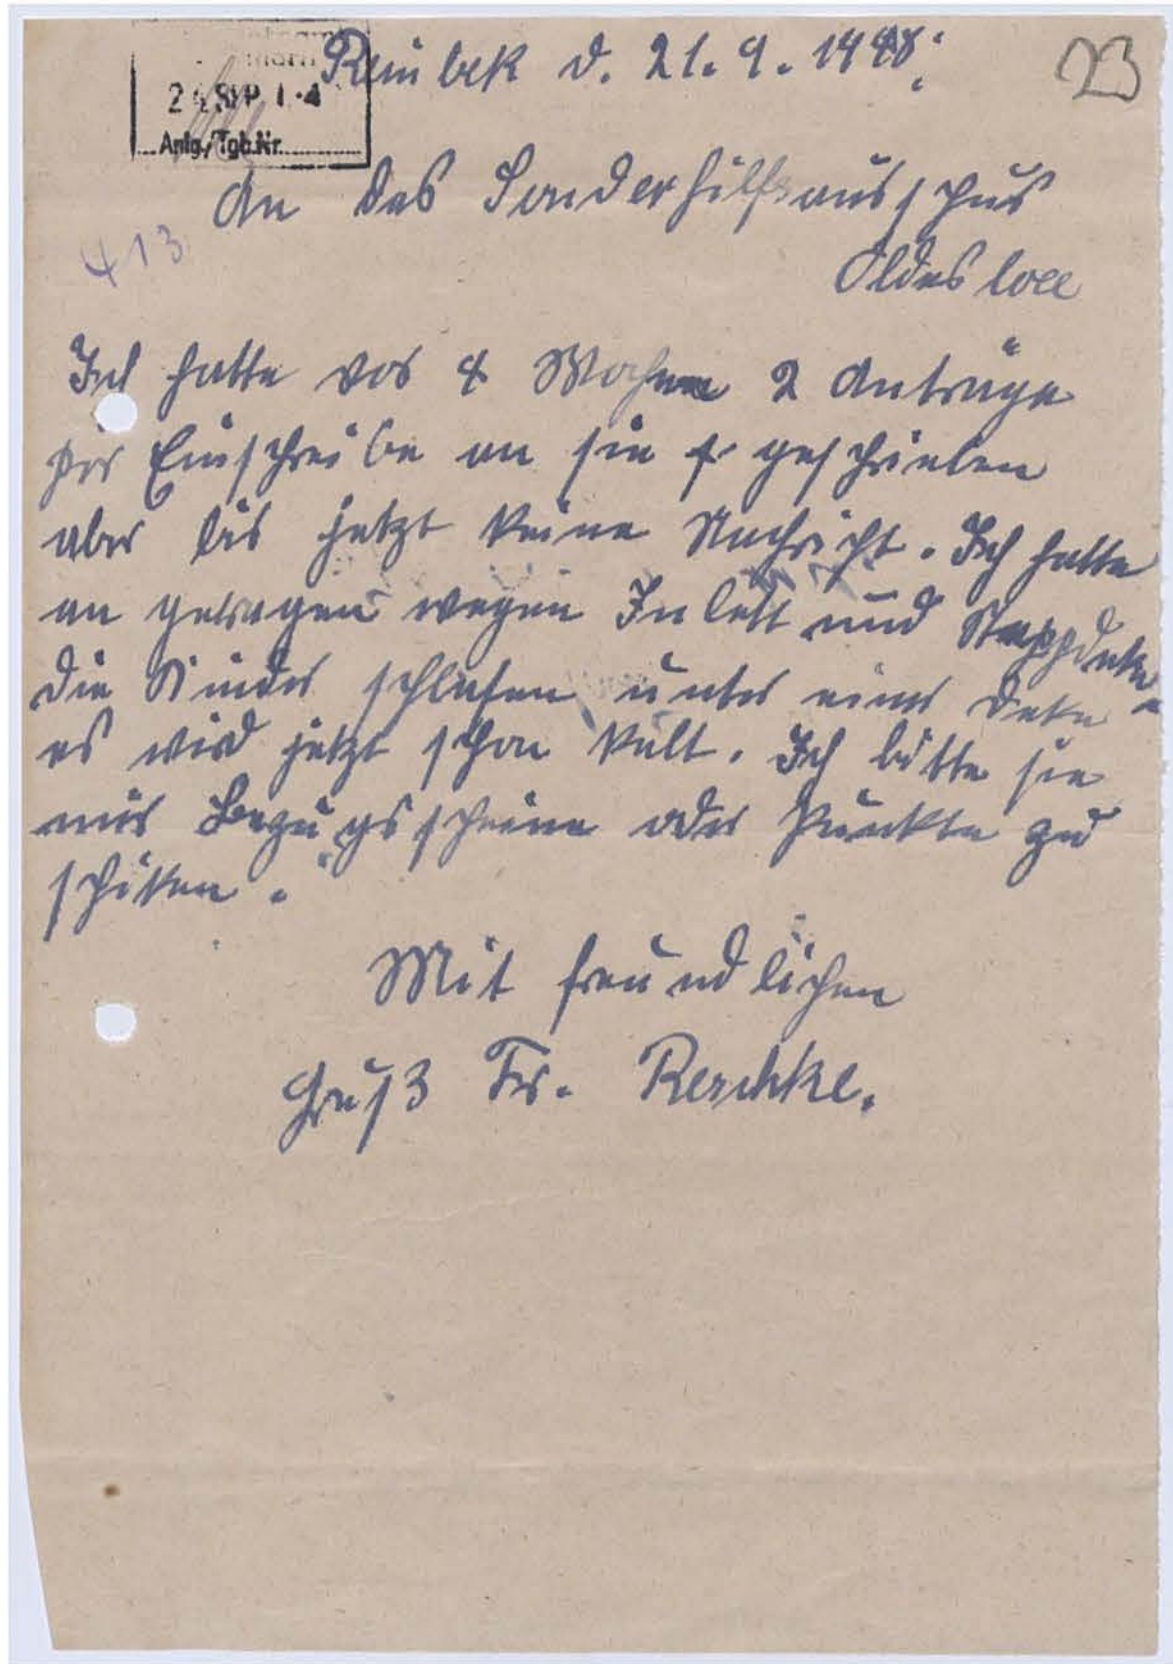 Reinbek d. 21.9.1948.
23
24 SEP 1 4
Anlg./Tgb.Nr.
An das Sonderhilfsausschus
413
Oldesloe
Ich hatte vor 4 Wochen 2 Anträge
per Einschreibe an sie geschrieben
aber bis jetzt keine Nachricht. Ich hatte
an getragen wegen Inlett und Steppdeken
die Kinder schlafen unter einer Deke
es wird jetzt schon kalt. Ich bitte sie
mir Bezugsscheine oder Punkte zu
schiken.
Mit freundlichen
Gruß Fr. Reschke.